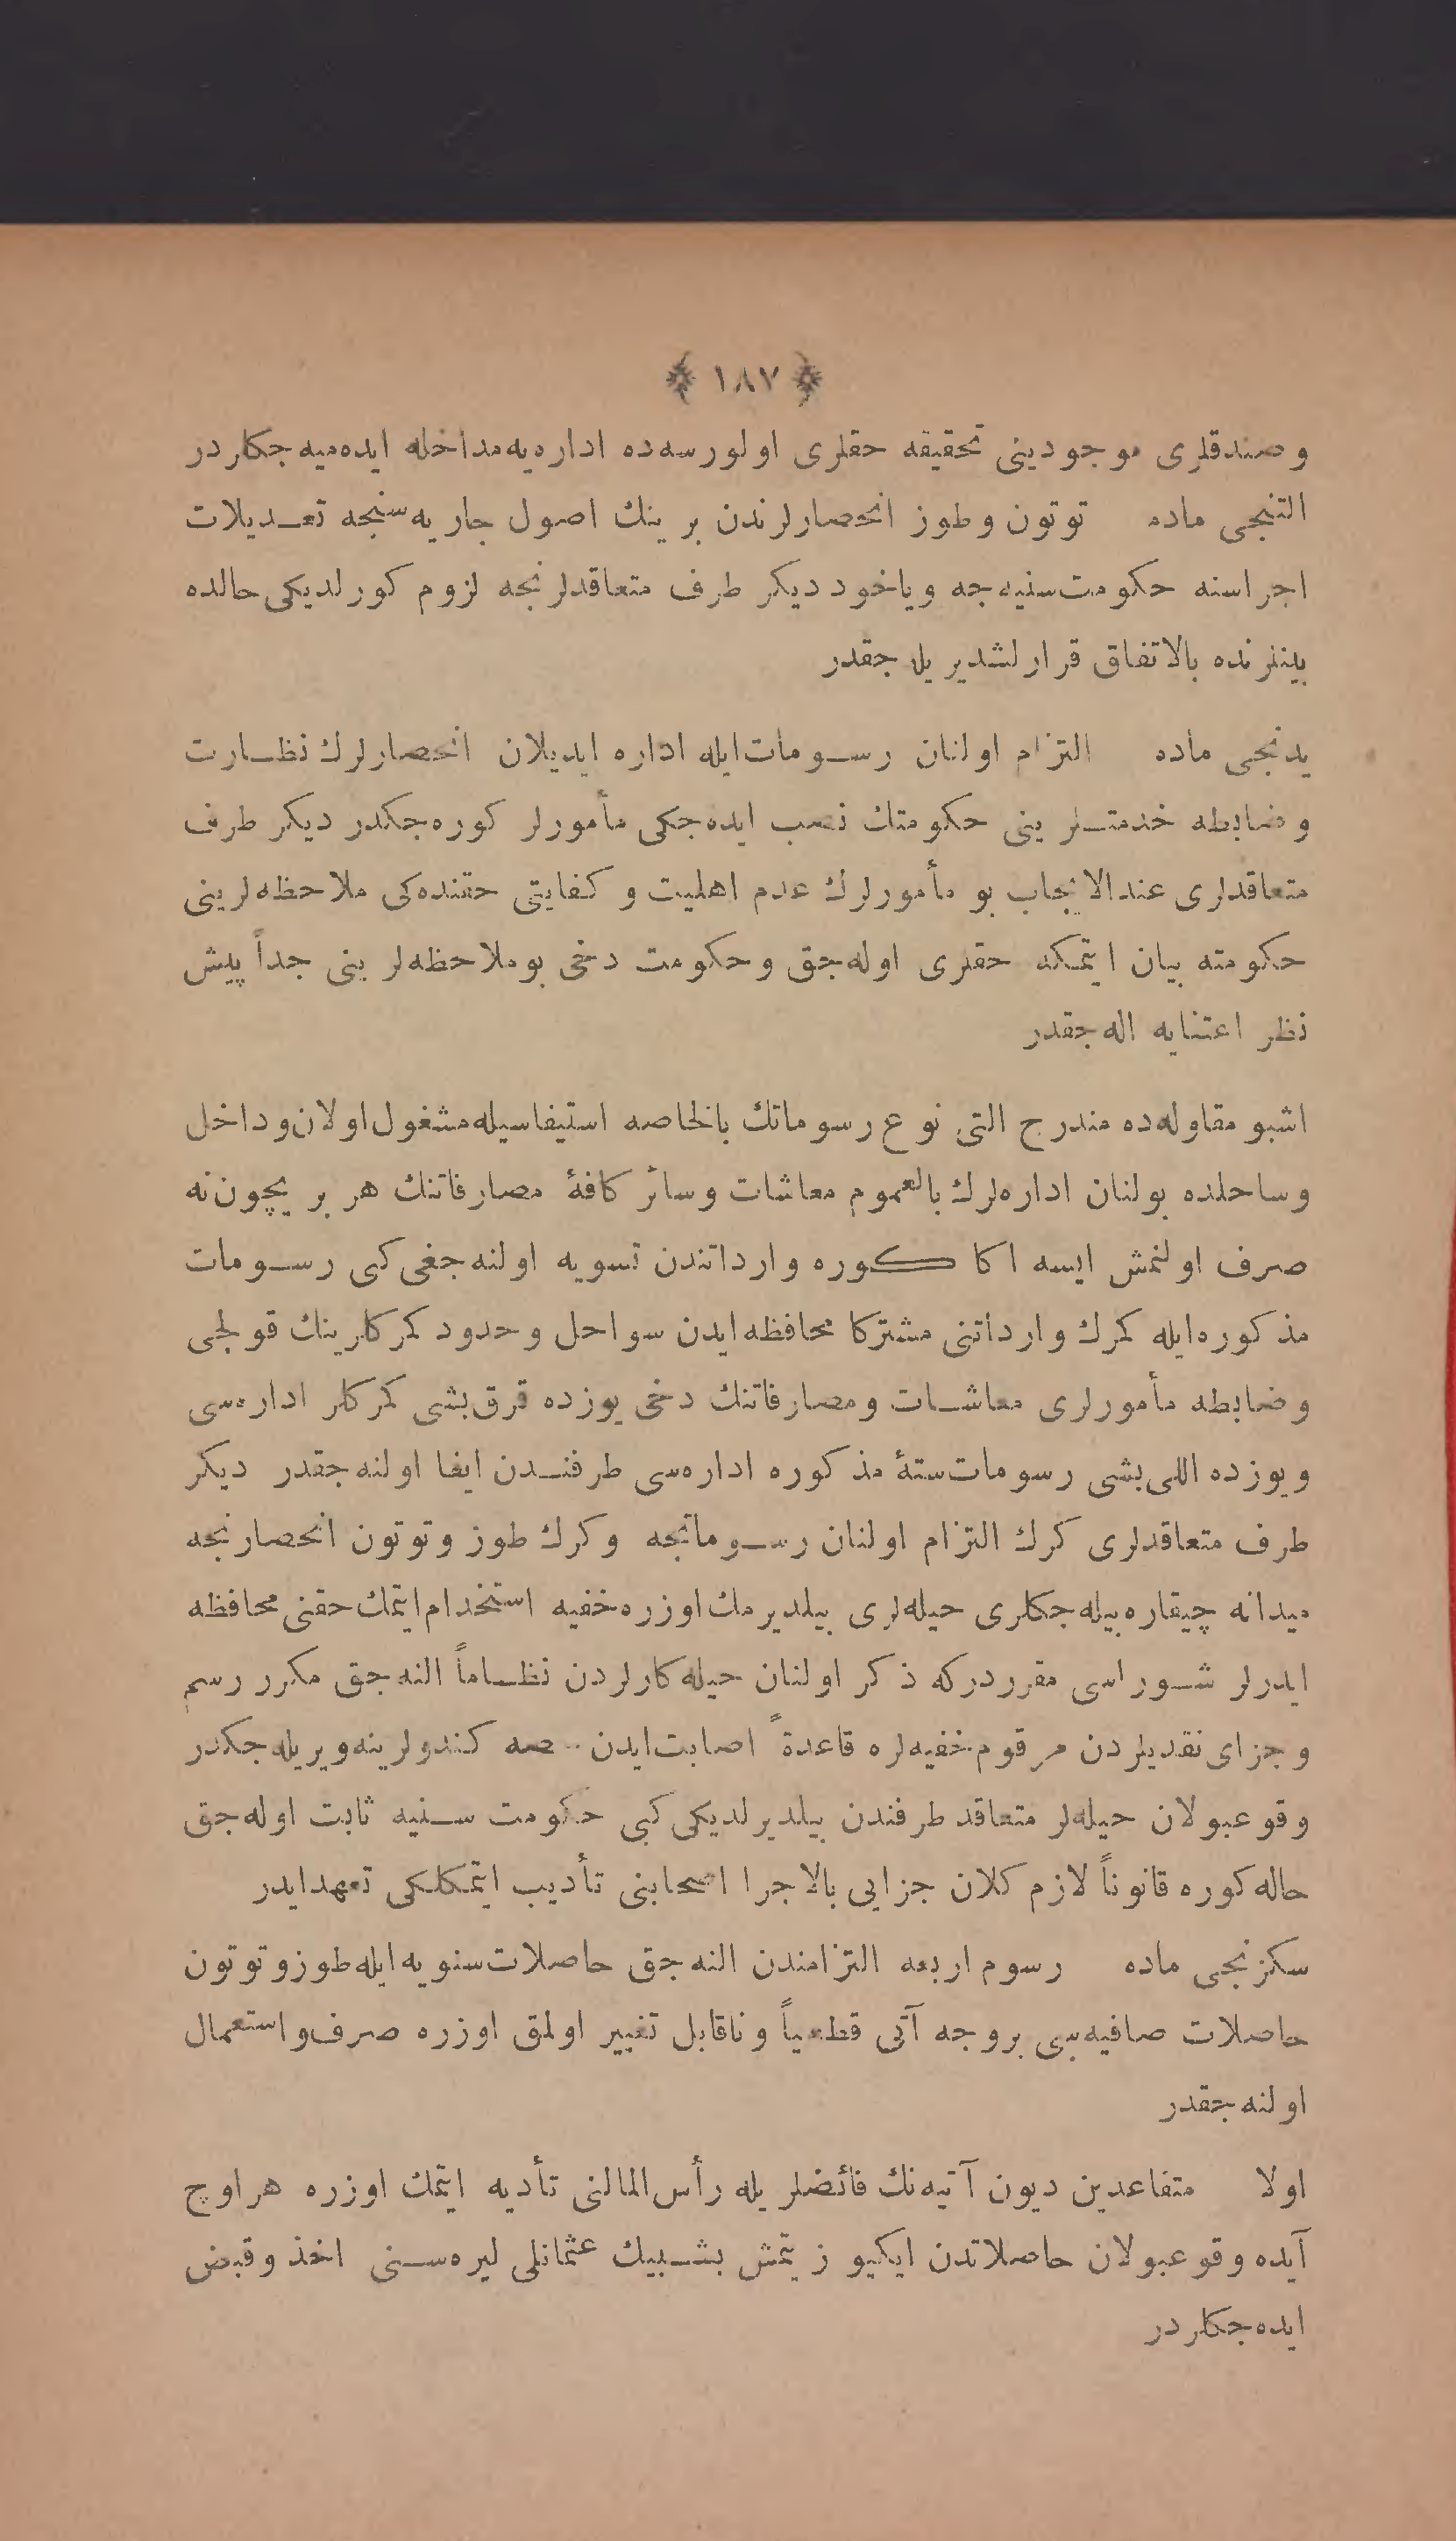 ﴿ ١٨٧ ﴾
و صندقلری موجودینی تحقیقه حقلری اولورسه‌ده اداره‌یه مداخله ایده‌میه‌جکلردر
التنجی ماده توتون وطوز انحصارلرندن برینك اصول جاریه‌سنجه تعدیلات
اجراسنه حکومت‌سنیه‌جه ویاخود دیکر طرف متعاقدلرنجه لزوم کورلدیکی حالده
بینلرنده بالاتفاق قرارلشدیریله‌جقدر
یدنجی ماده التزام اولنان رسومات‌ایله اداره ایدیلان انحصارلرك نظارت
وضابطه خدمتلرینی حکومتك نصب ایده‌جکی مأمورلر کوره‌جکدر دیکر طرف
متعاقدلری عندالایجاب بو مأمورلرك عدم اهلیت و کفایتی حقنده‌کی ملاحظه‌لرینی
حکومته بیان ایتمکه حقلری اوله‌جق وحکومت دخی بوملاحظه‌لرینی جداً پیش
نظر اعتنایه اله‌جقدر
اشبو مقاوله‌ده مندرج التی نوع رسوماتك بالخاصه استیفاسیله‌مشغول‌اولان‌وداخل
وساحلده بولنان اداره‌لرك بالعموم معاشات وسائر کافهٔ مصارفاتنك هر بریچون‌نه
صرف اولنمش ایسه اکا کوره وارداتندن تسویه اولنه‌جغی‌کبی رسومات
مذکوره‌ایله کمرك وارداتنی مشترکا محافظه‌ایدن سواحل وحدود کمرکلرینك قولجی
وضابطه مأمورلری معاشات ومصارفاتنك دخی یوزده قرق‌بشی کمرکلر اداره‌سی
ویوزده اللی‌بشی رسومات‌ستهٔ مذکوره اداره‌سی طرفندن ایفا اولنه‌جقدر دیکر
طرف متعاقدلری کرك التزام اولنان رسوماتجه وکرك طوز وتوتون انحصارنجه
میدانه چیقاره‌بیله‌جکلری حیله‌لری بیلدیرمك‌اوزره‌خفیه استخدام‌ایتمك‌حقنی‌محافظه
ایدرلر شوراسی مقرردرکه ذکر اولنان حیله‌کارلردن نظاماً النه‌جق مکرر رسم
وجزای نقدیلردن مرقوم‌خفیه‌لره قاعدةً اصابت‌ایدن حصه کندولرینه‌ویریله‌جکدر
وقوعبولان حیله‌لر متعاقد طرفندن بیلدیرلدیکی‌کبی حکومت سنیه ثابت اوله‌جق
حاله‌کوره قانوناً لازم کلان جزایی بالاجرا اصحابنی تأدیب ایتمکلکی تعهدایدر
سکزنجی ماده رسوم اربعه التزامندن النه‌جق حاصلات‌سنویه‌ایله‌طوزوتوتون
حاصلات صافیه‌سی بروجه آتی قطعیاً وناقابل تغییر اولمق اوزره صرف‌واستعمال
اولنه‌جقدر
اولا متفاعدین دیون آتیه‌نك فائضلریله رأس‌المالنی تأدیه ایتمك اوزره هراوچ
آیده وقوعبولان حاصلاتدن ایکیوز یتمش بشبیك عثمانلی لیره‌سنی اخذ وقبض
ایده‌جکلردر